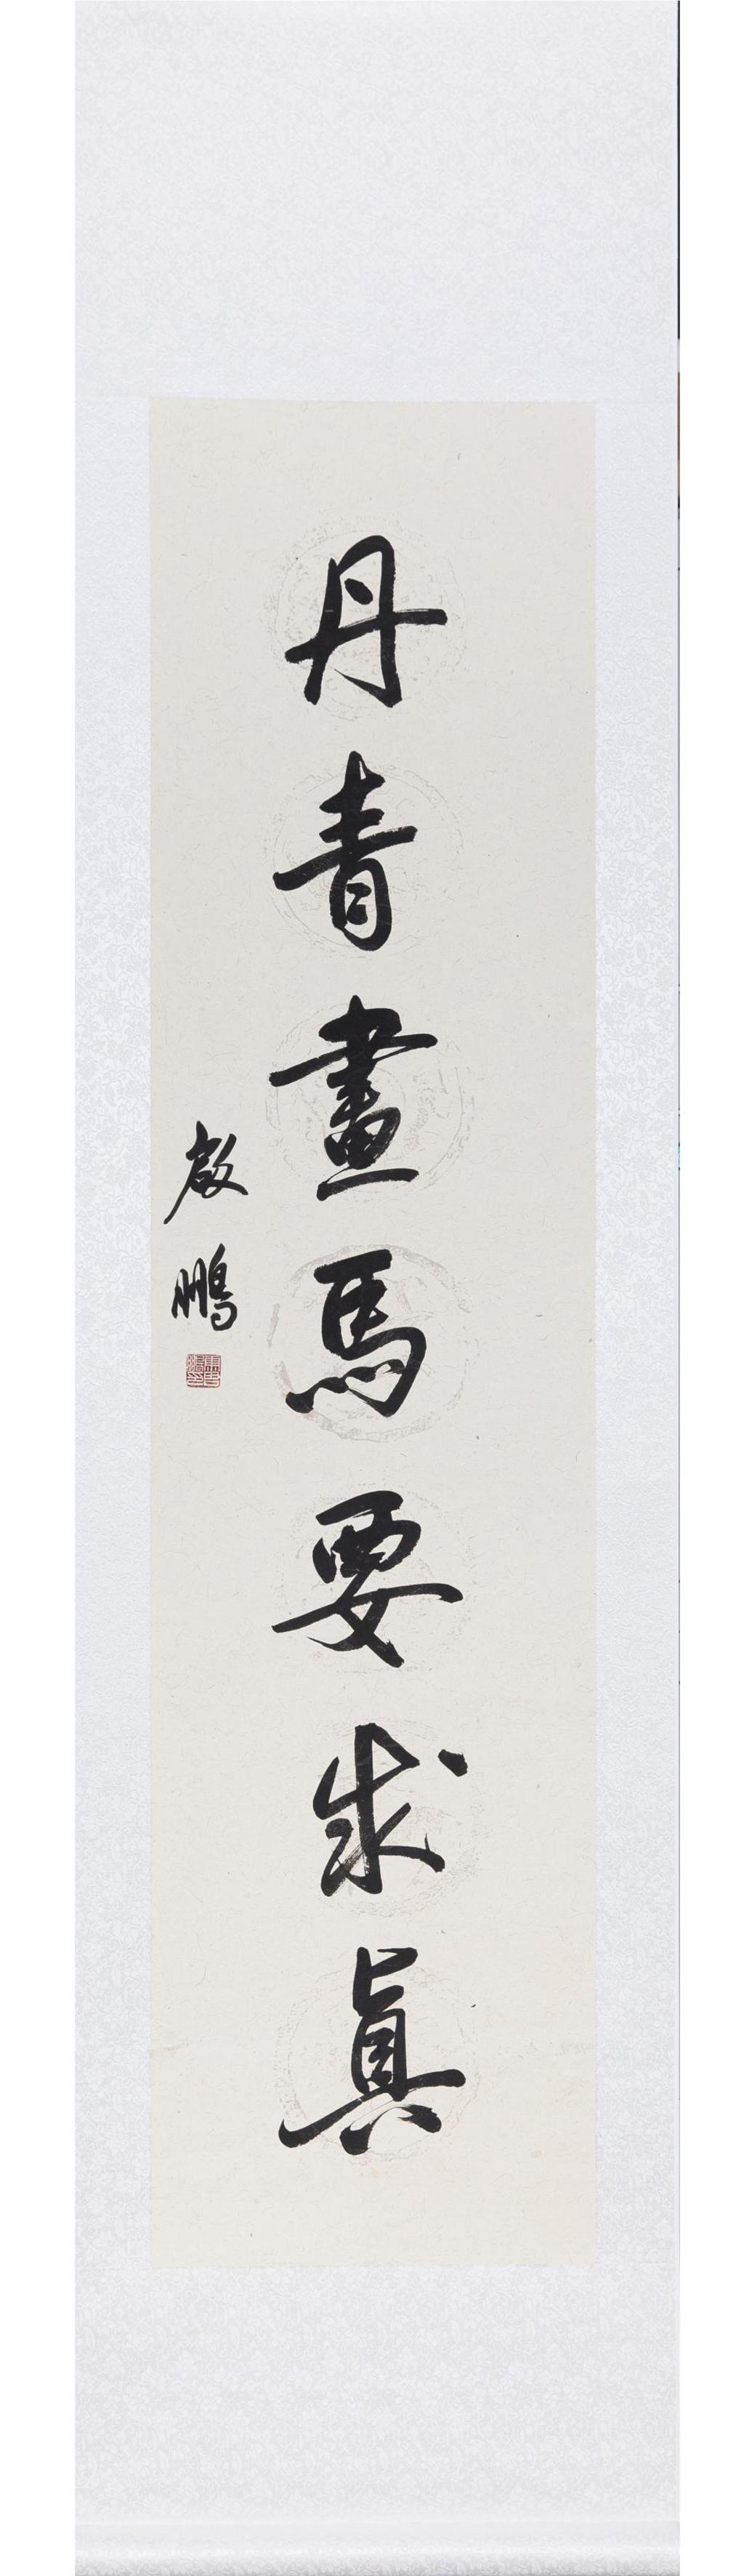 丹青畫馬要求真
啟鵬